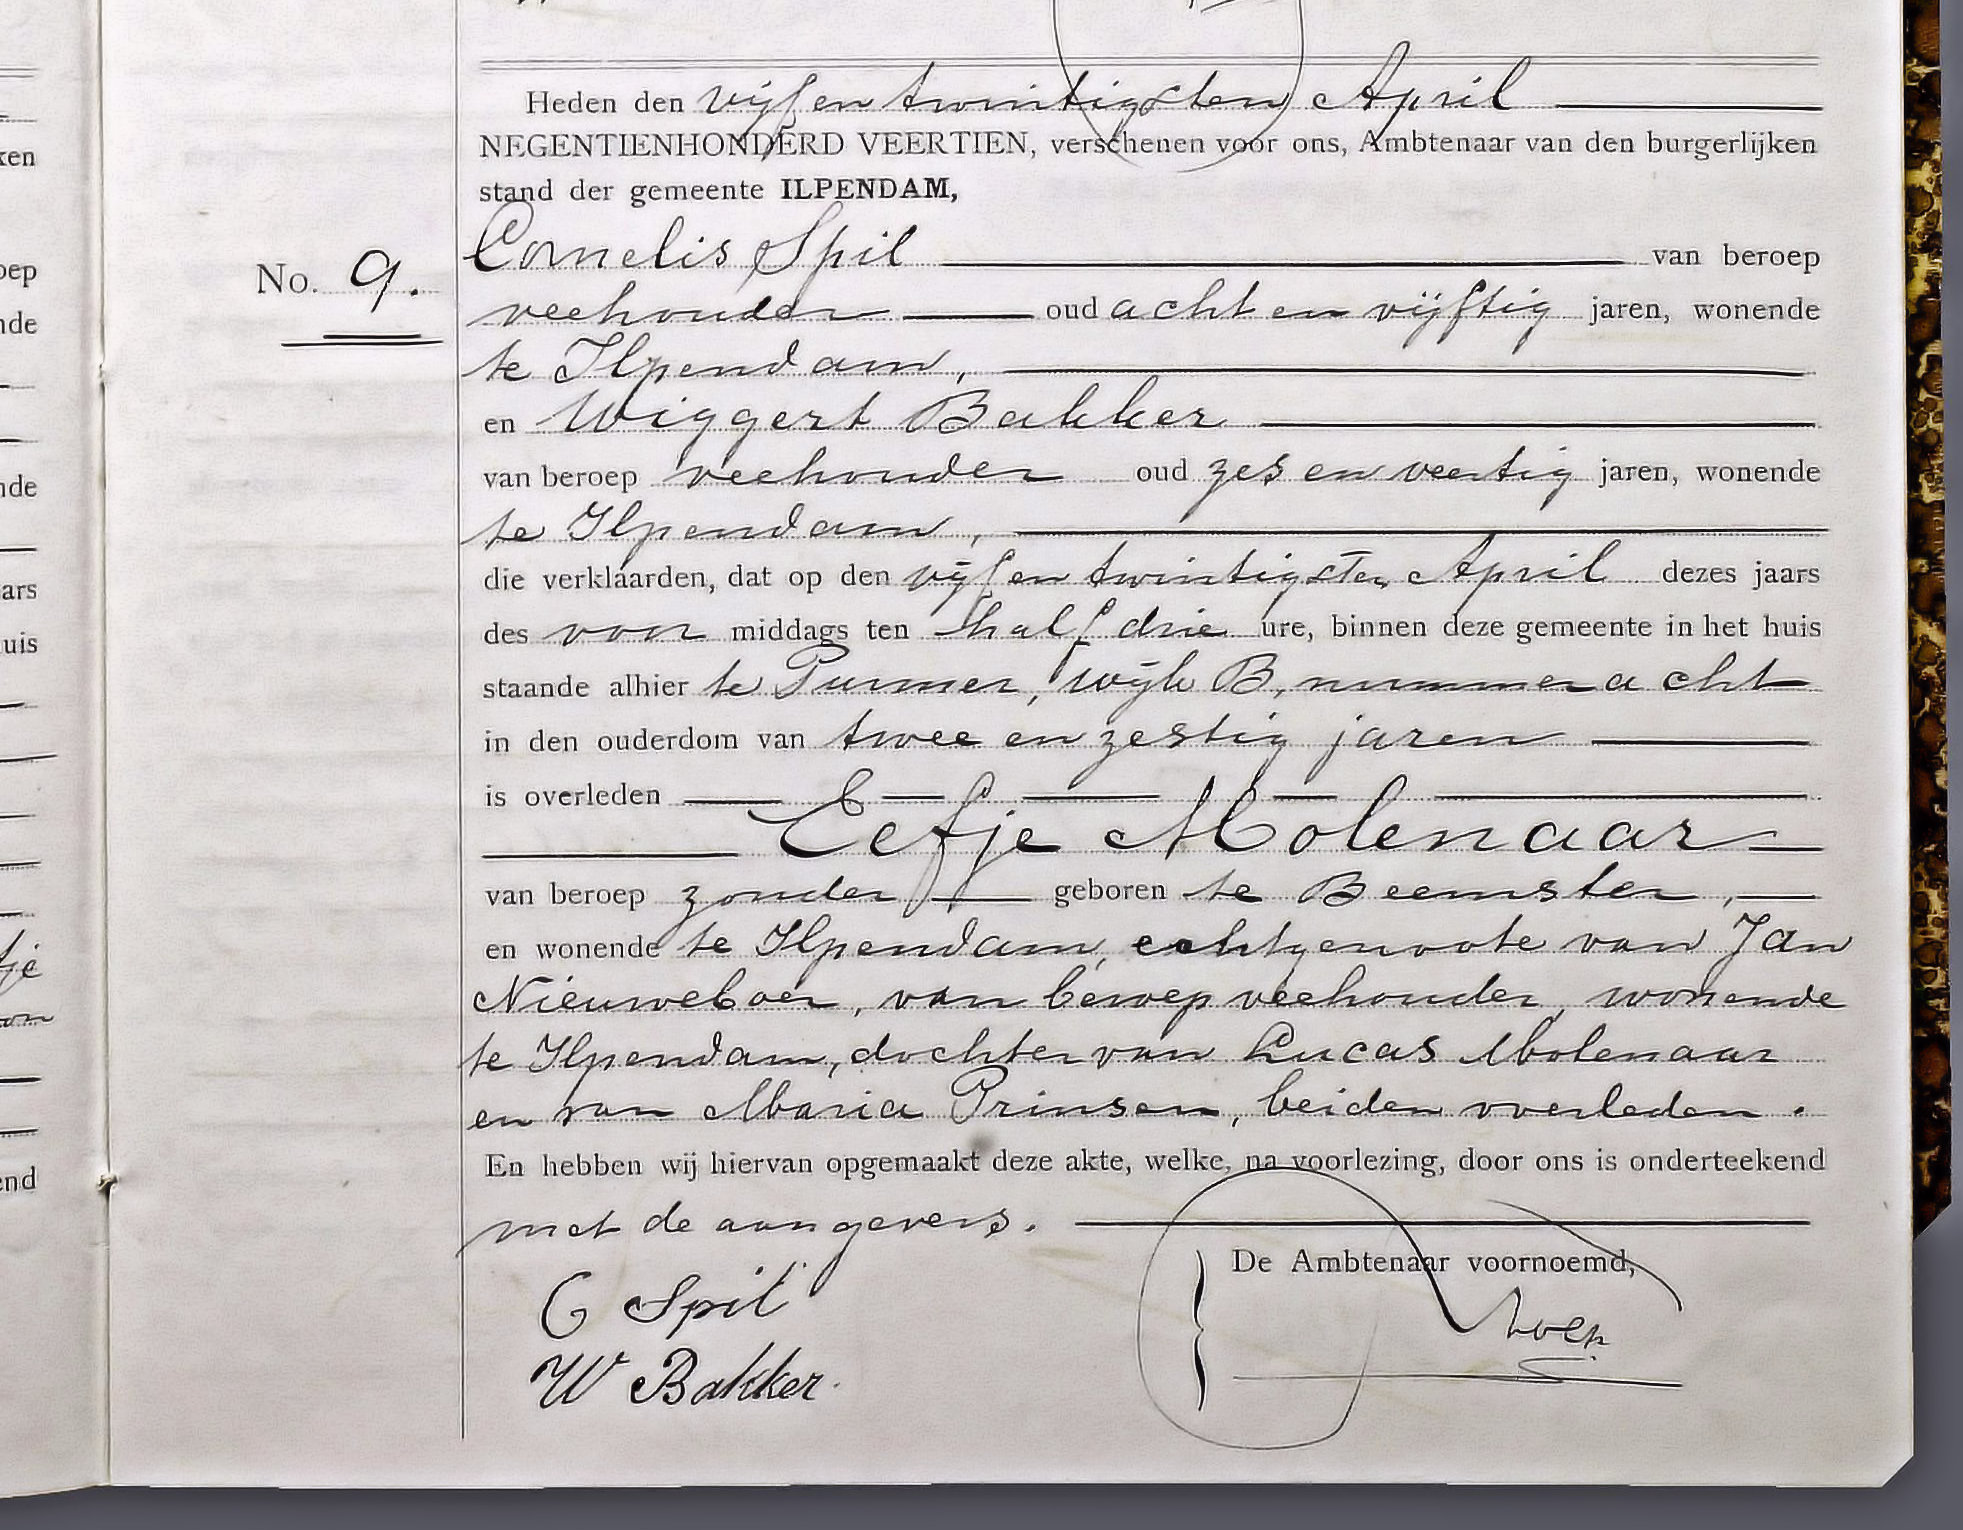 Heden den vijf en twintigsten April
NEGENTIENHONDERD VEERTIEN, verschenen voor ons, Ambtenaar van den burgerlijken
stand der gemeente ILPENDAM,
No. 9.
Cornelis Spil van beroep
veehouder oud acht en vijftig jaren, wonende
te Ilpendam,
en Wiggert Bakker
van beroep veehouder oud zes en veertig jaren, wonende
te Ilpendam,
die verklaarden, dat op den vijf en twintigsten April dezes jaars
des voor middags ten half drie ure, binnen deze gemeente in het huis
staande alhier te Purmer, wijk B, nummer acht
in den ouderdom van twee en zestig jaren
is overleden
Eefje Molenaar
van beroep zonder geboren te Beemster,
en wonende te Ilpendam, echtgenoote van Jan
Nieuweboer, van beroep veehouder, wonende
te Ilpendam, dochter van Lucas Molenaar
en van Maria Prinsen, beiden overleden.
En hebben wij hiervan opgemaakt deze akte, welke, na voorlezing, door ons is onderteekend
met de aangevers.
De Ambtenaar voornoemd,
C Spil
W Bakker.
ken
oep
nde
nde
ars
uis
tje
end